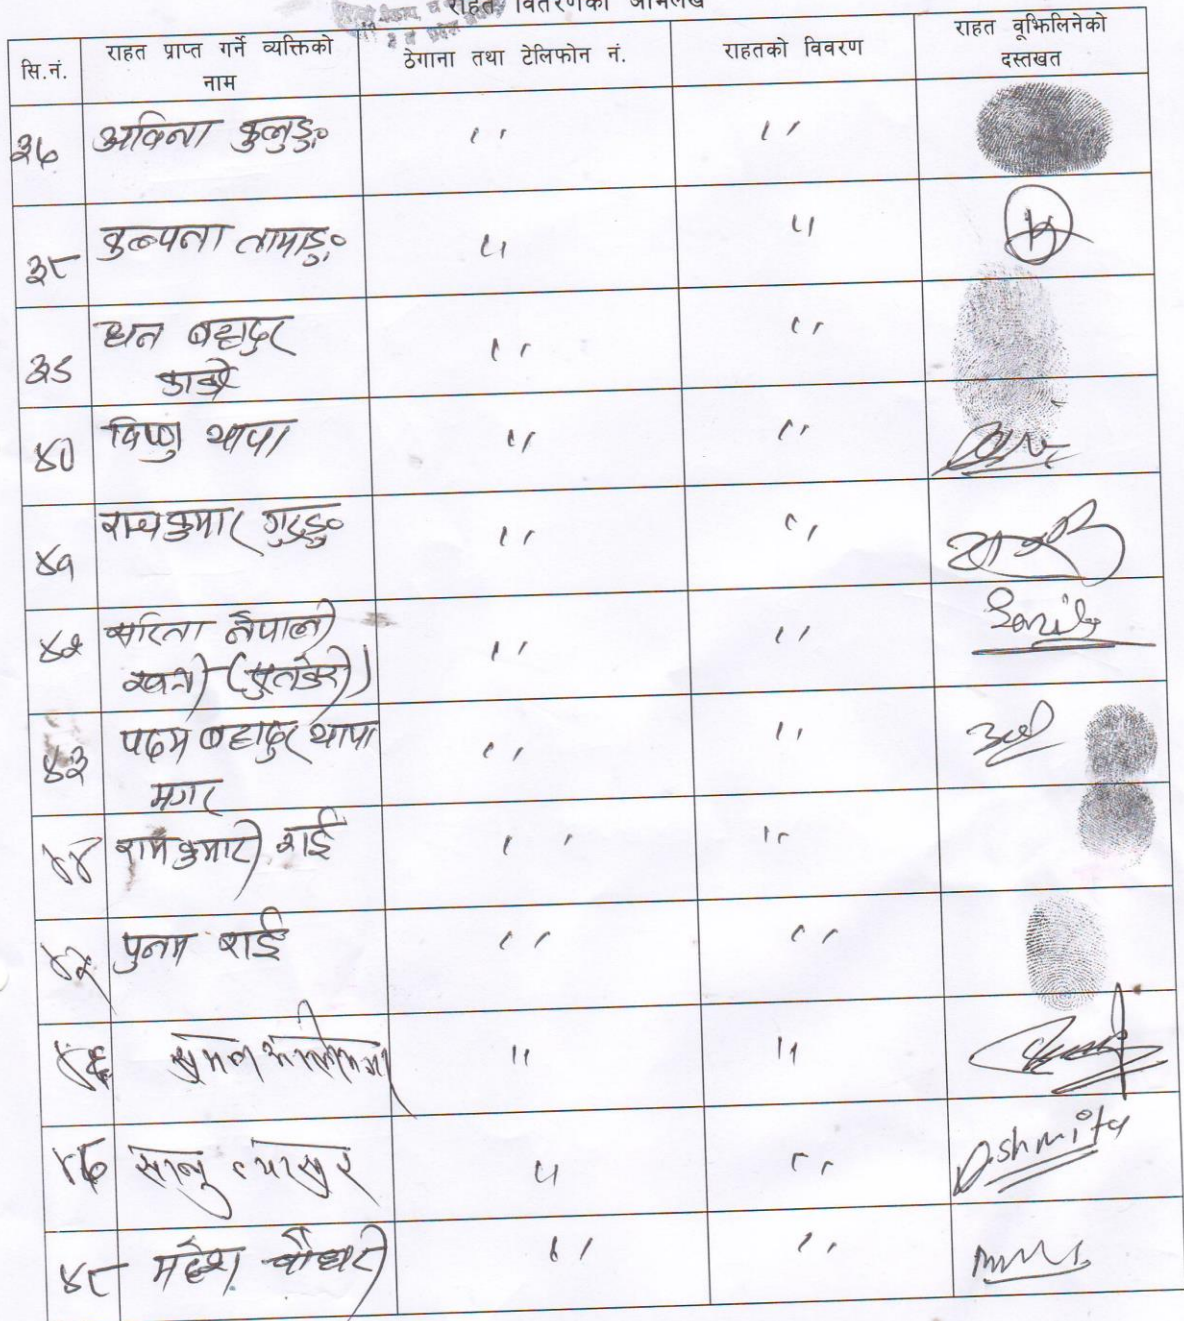 राहत वितरणको अभिलेख
सि.नं. राहत प्राप्त गर्ने व्यक्तिको नाम ठेगाना तथा टेलिफोन नं. राहतको विवरण राहत वूझिलिनेको दस्तखत
३७ अविना कुलुङ्ग " "
३८ कल्पना तामाङ्ग " "
३९ धन बहादुर " "
४० विष्णु थापा " "
४१ राजकुमार गुरुङ्ग " "
४२ सरिता नेपाली " "
४३ पदम बहादुर थापा " "
मगर
४४ रामकुमारी राई " "
४५ पुनम राई " "
४६ सुमन " "
४७ सानु " " Ashmita
४८ महेश चौधरी " "